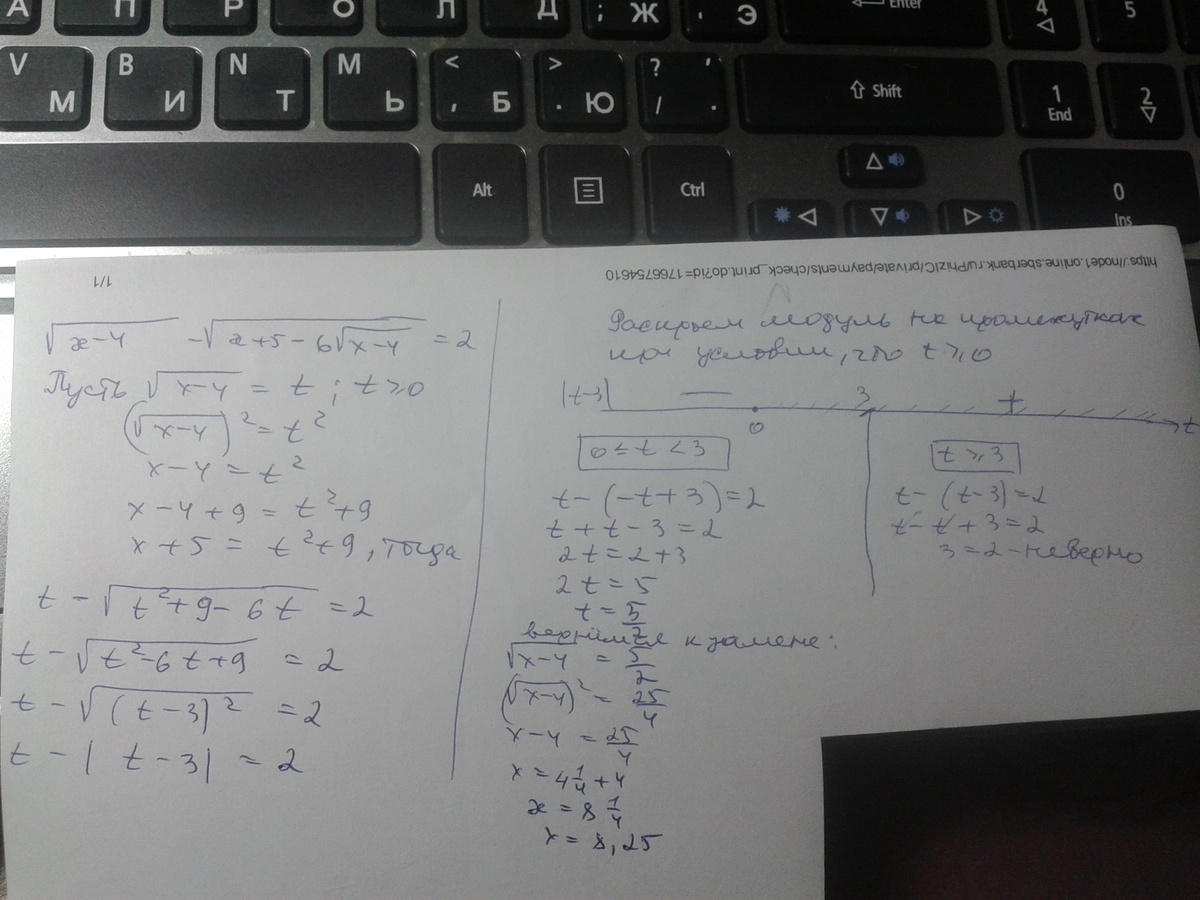 А П Р О Л Д ; Ж ' Э Enter 4 5
V М B И N Т M Ь < , Б > . Ю ? / ' . Shift 1 End 2
Alt Ctrl 0 Ins
https://node1.online.sberbank.ru/PhizIC/private/payments/check_print.do?id=1766754610
1/1
√x-4 - √x+5-6√x-4 = 2
Пусть √x-4 = t ; t ≥ 0
(√x-4)² = t²
x-4 = t²
x-4+9 = t²+9
x+5 = t²+9, тогда
t - √t²+9-6t = 2
t - √t²-6t+9 = 2
t - √(t-3)² = 2
t - | t-3| = 2
Раскроем модуль на промежутках
при условии, что t ≥ 0
|t-3| — 0 3 + t
0 ≤ t < 3
t - (-t+3) = 2
t + t - 3 = 2
2t = 2+3
2t = 5
t = 5/2
t ≥ 3
t - (t-3) = 2
t - t + 3 = 2
3 = 2 - неверно
вернимся к замене:
√x-4 = 5/2
(√x-4)² = 25/4
x-4 = 25/4
x = 4 1/4 + 4
x = 8 1/4
x = 8,25